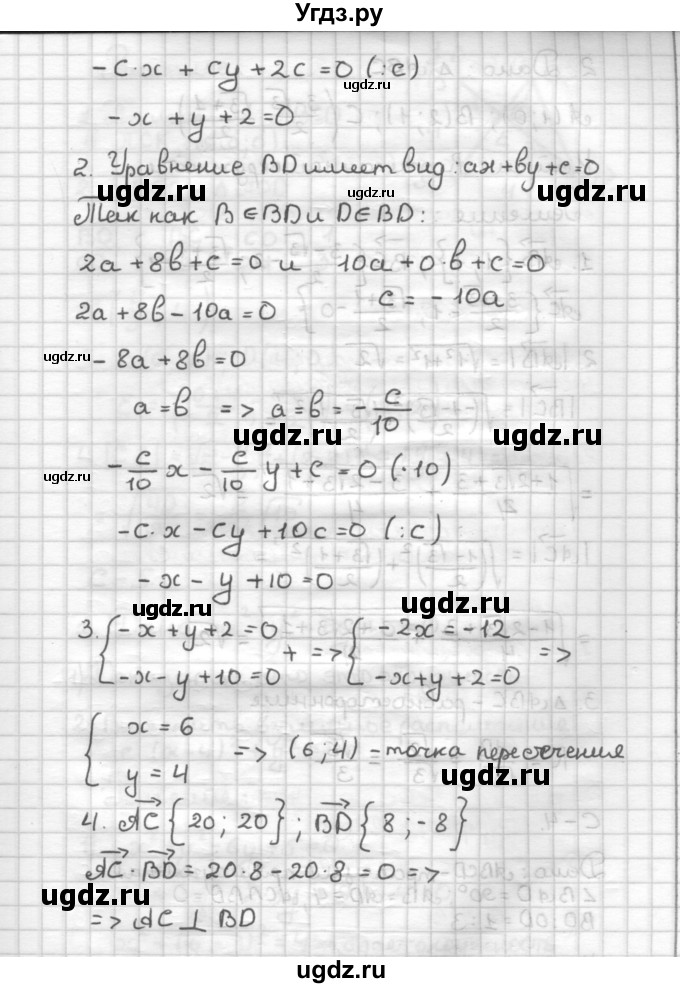 Угдз.ру
-c·x + cy + 2c = 0 (:c)
ugdz.ru
-x + y + 2 = 0
2. Уравнение BD имеет вид: ax+by+c=0
ugdz.ru ugdz.ru ugdz.ru
Так как B∈BD и D∈BD:
2a+8b+c=0 и 10a+0·b+c=0
2a+8b-10a=0 c = -10a
ugdz.ru ugdz.ru
-8a+8b=0
a=b => a=b=-c/10
ugdz.ru ugdz.ru
ugdz.ru -c/10 x - c/10 y + c = 0 (·10)
-c·x - cy + 10c = 0 (:c)
ugdz.ru
-x - y + 10 = 0
ugdz.ru ugdz.ru
3. { -x+y+2=0 + => { -2x=-12 =>
{ -x-y+10=0 { -x+y+2=0
{ x=6
{ y=4 => (6;4) - точка пересечения
ugdz.ru
4. AC{20; 20}; BD{8; -8}
AC·BD = 20·8-20·8=0 =>
ugdz.ru ugdz.ru
=> AC ⊥ BD
ugdz.ru